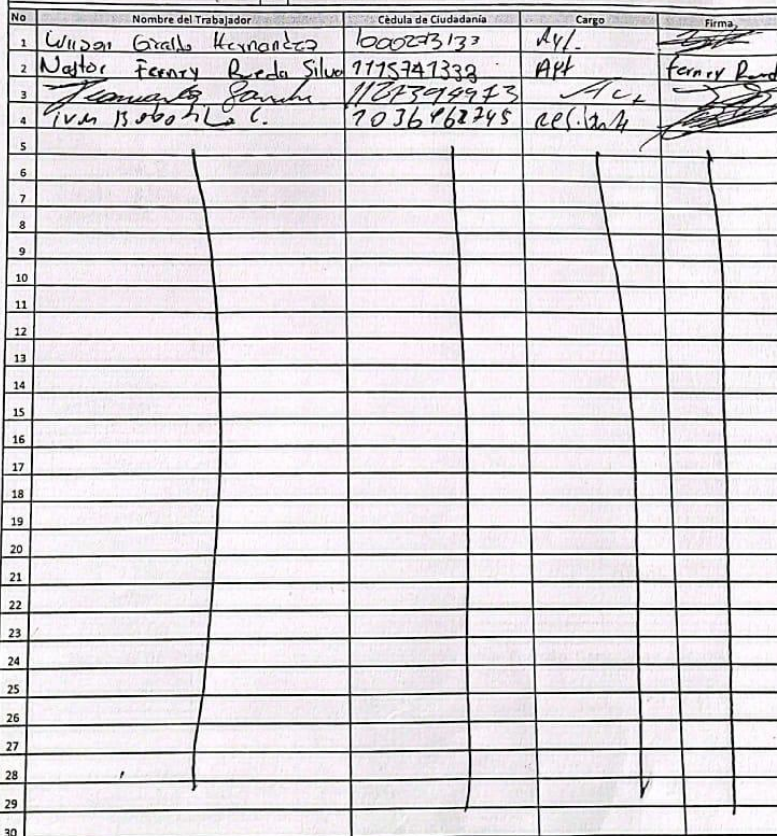 No Nombre del Trabajador Cédula de Ciudadanía Cargo Firma
1 Wilson Giraldo Hernandez 1000273133 Ay.
2 Nestor Ferney Rueda Silva 1115741333 Apt ferney Rued
3
4 C. 1036962745
5
6
7
8
9
10
11
12
13
14
15
16
17
18
19
20
21
22
23
24
25
26
27
28
29
30